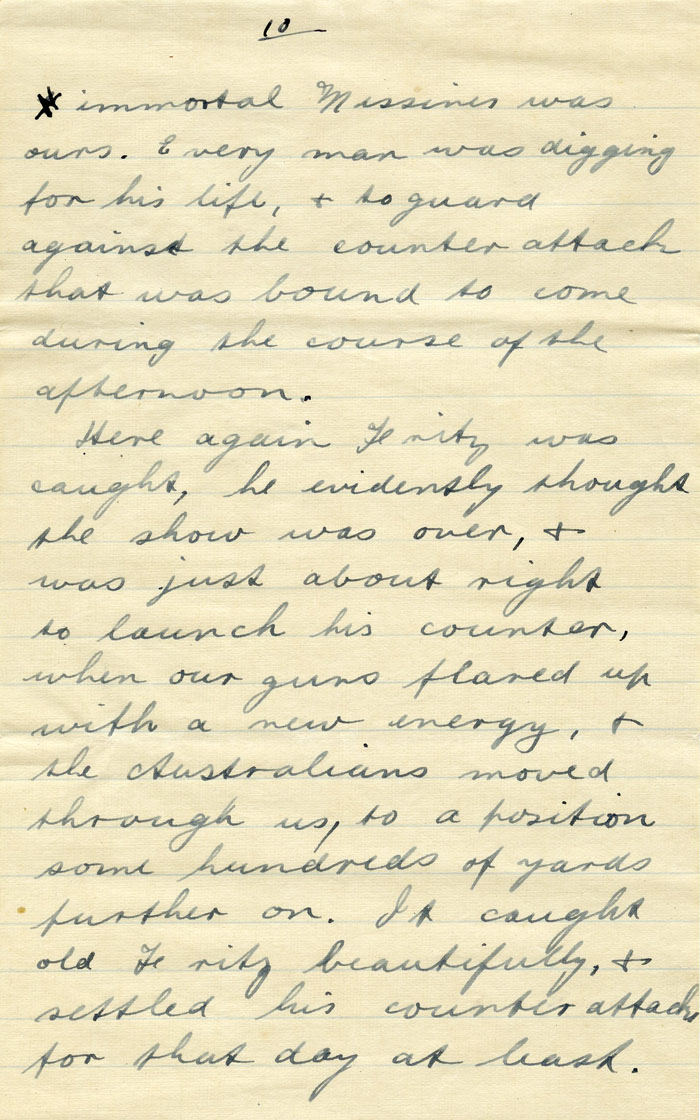 10
* immortal Messines was
ours. Every man was digging
for his life, + to guard
against the counter attack
that was bound to come
during the course of the
afternoon.
Here again Fritz was
caught, he evidently thought
the show was over, +
was just about right
to launch his counter,
when our guns flared up
with a new energy, +
the Australians moved
through us, to a position
some hundreds of yards
further on. It caught
old Fritz beautifully, +
settled his counter attacks
for that day at least.